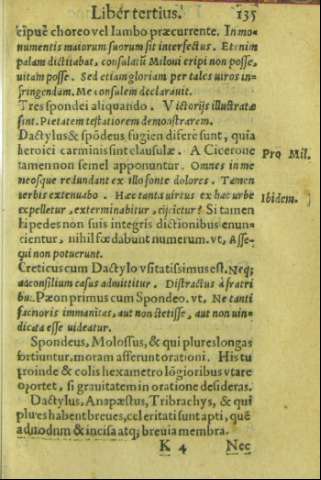 Liber tertius. 135
cipuè choreo vel Iambo præcurrente. In mo-
numentis maiorum suorum sit interfectus. Etenim
palam dictitabat, consulatū Miloni eripi non posse,
uitam posse. Sed etiam gloriam per tales uiros in-
fringendam. Me consulem declarauit.
Tres spondei aliquando. Victorijs illustratæ
sint. Pietatem testatiorem demonstrarem.
Dactylus & spōdeus fugiendi ferè sunt, quia
heroici carminis sint clausulæ. A Cicerone
tamen non semel apponuntur. Omnes in me Pro Mil.
meosque redundant ex illo fonte dolores. Tamen
uerbis extenuabo. Hæc tanta uirtus ex hac urbe Ibidem.
expelletur, exterminabitur, eijcietur? Si tamen
Hpedes non suis integris dictionibus enun-
cientur, nihil fœdabunt numerum. vt, Asse-
qui non potuerunt.
Creticus cum Dactylo vsitatissimus est. Neq;
ad consilium casus admittitur. Distractus à fratri
bus. Pæon primus cum Spondeo. vt, Ne tanti
facinoris immanitas, aut non stetisse, aut non uin-
dicata esse uideatur.
Spondeus, Molossus, & qui plures longas
sortiuntur, moram afferunt orationi. His tu
proinde & colis hexametro lōgioribus vtare
oportet, si grauitatem in oratione desideras.
Dactylus, Anapæstus, Tribrachys, & qui
plures habent breues, celeritati sunt apti, quē
admodum & incisa atq; breuia membra.
K 4 Nec